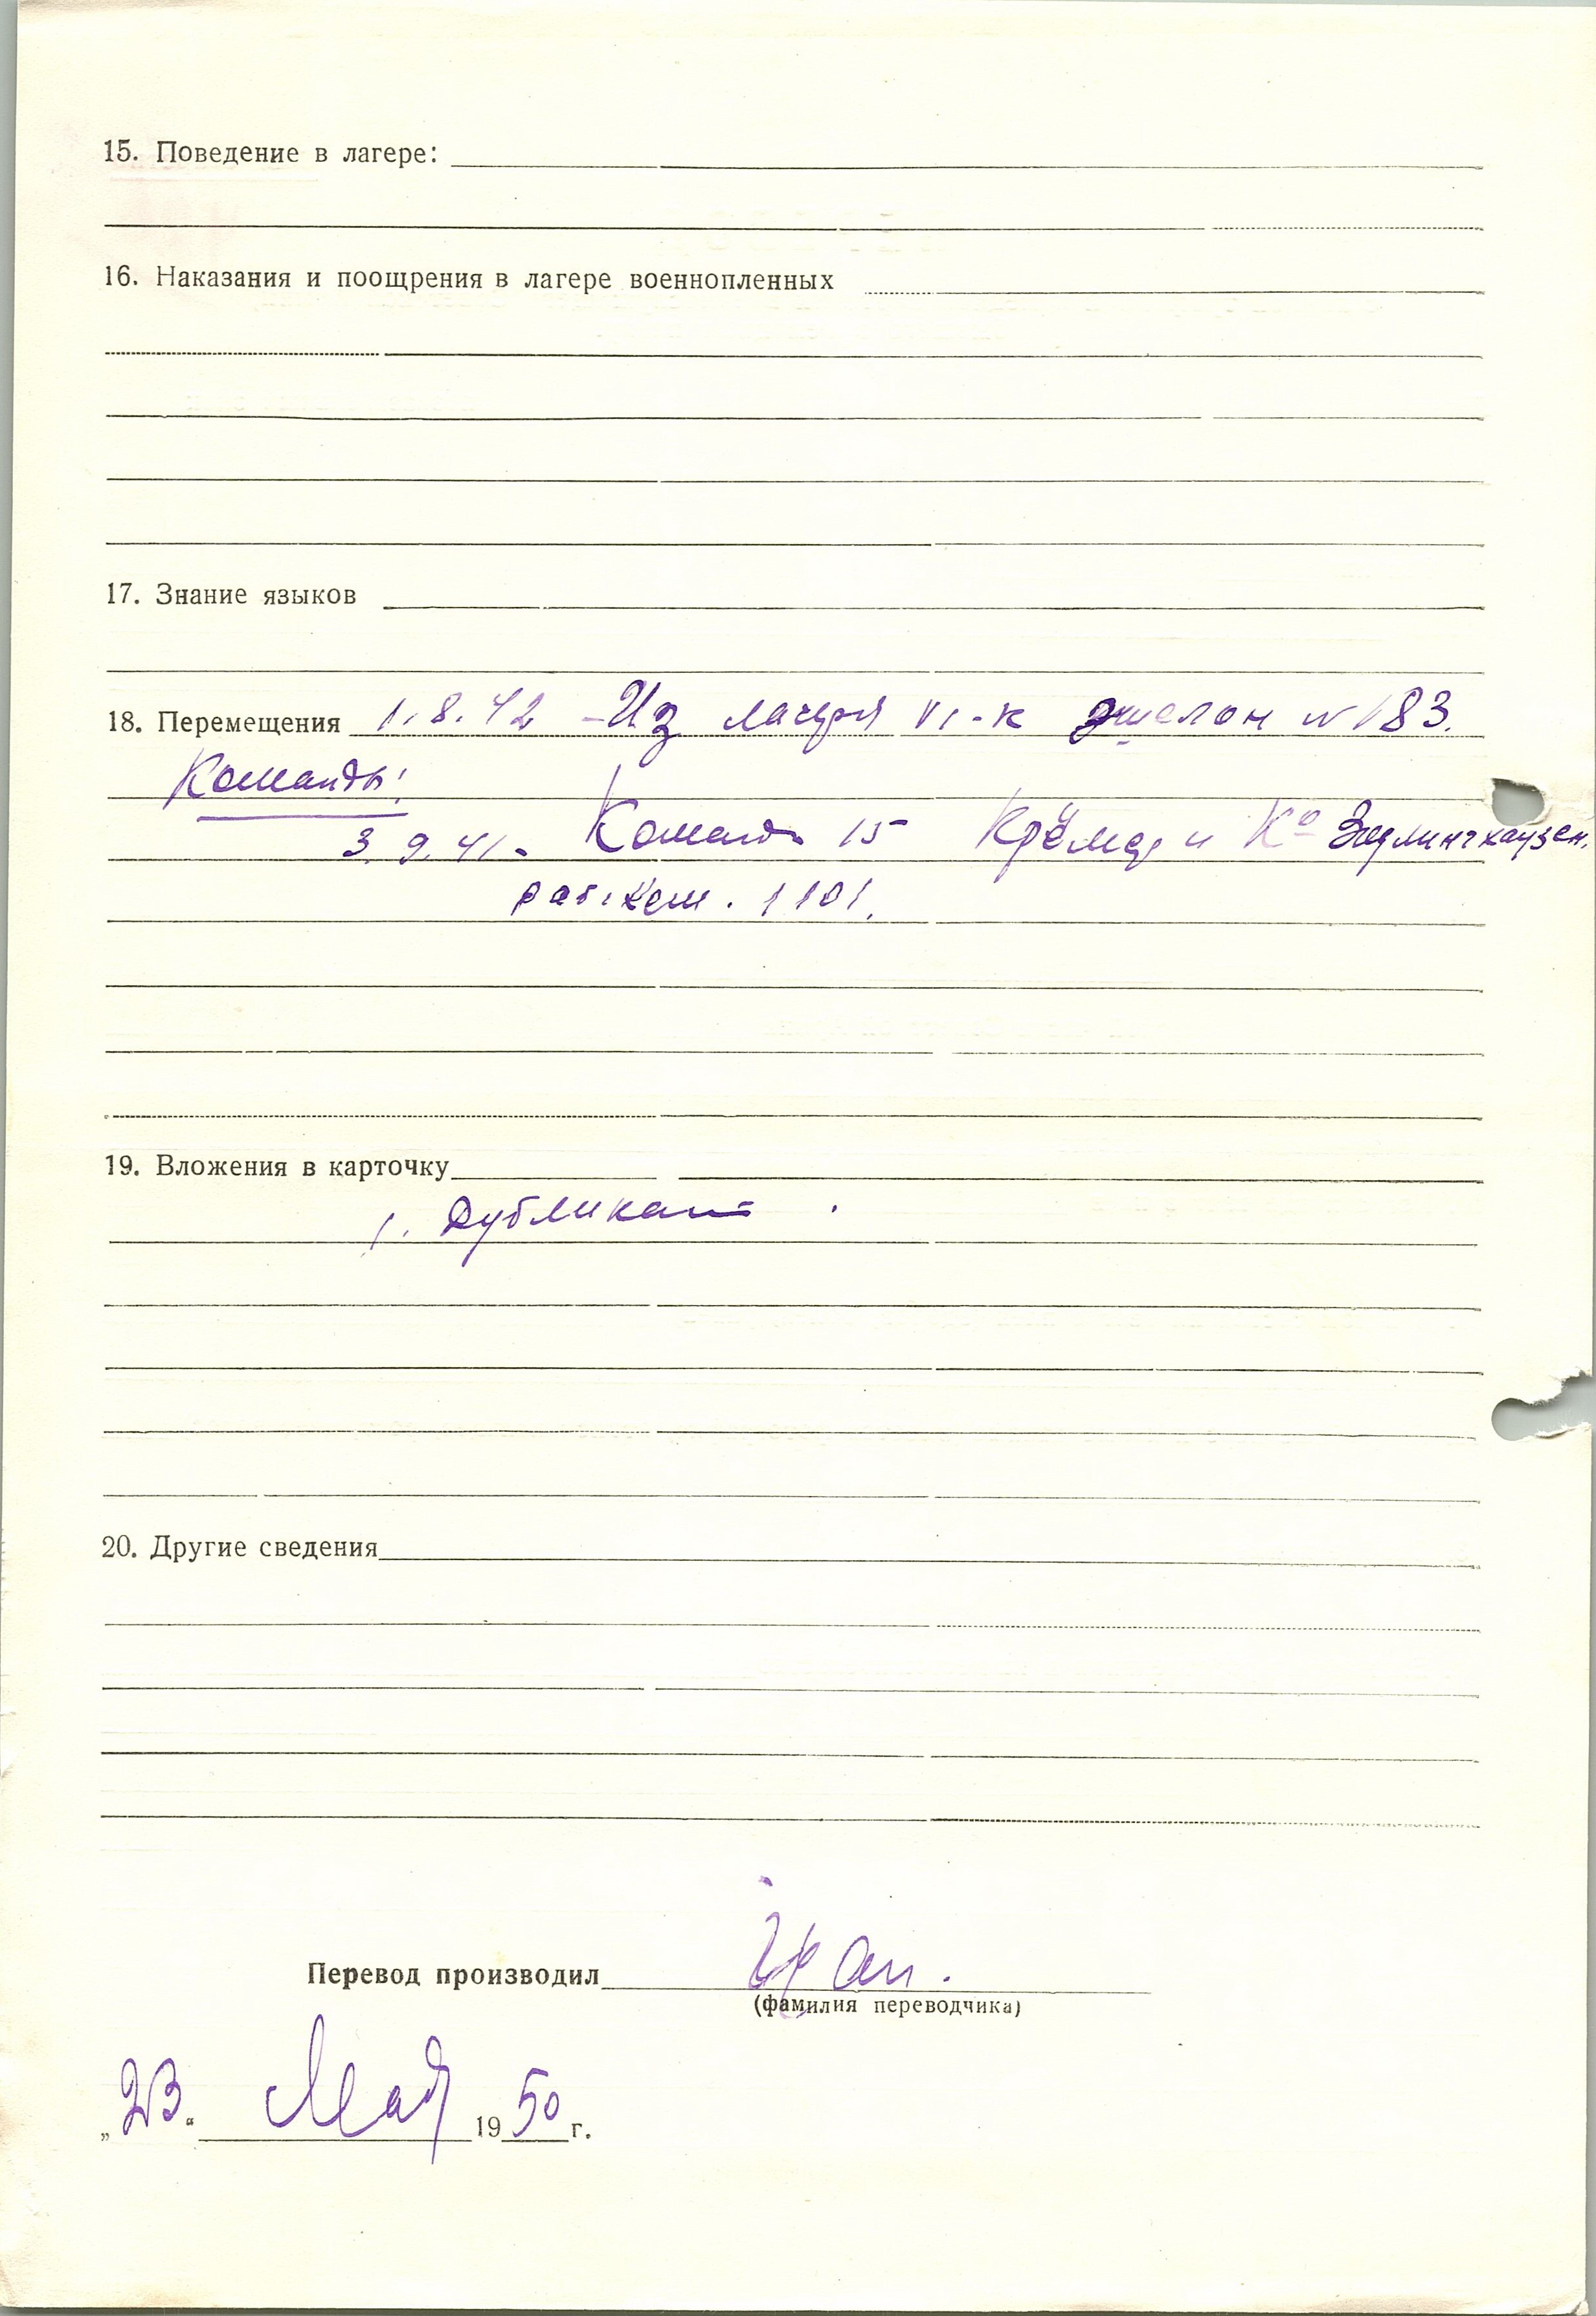 15. Поведение в лагере:
16. Наказания и поощрения в лагере военнопленных
17. Знание языков
18. Перемещения 1.8.42 – Из лагеря VI-К эшелон N 183.
Команды:
3.9.41. Команда 15 Крёмер и К° Зедлингхаузен.
раб. ком. 1101.
19. Вложения в карточку
1. Дубликат.
20. Другие сведения
Перевод производил
(фамилия переводчика)
„23“ Мая 1950 г.